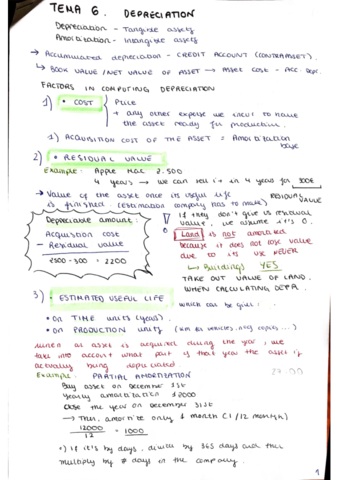 TEMA 6. DEPRECIATION
Depreciation - Tangible assets
Amortization - Intangible assets
→ Accumulated depreciation - CREDIT ACCOUNT (CONTRAASSET).
↳ BOOK VALUE / NET VALUE OF ASSET → ASSET COST - ACC. Depr.
FACTORS IN COMPUTING DEPRECIATION
1) • COST
Price
+ any other expense we incur to have
the asset ready for production.
1) ACQUISITION COST OF THE ASSET = Amortization
base
2) • RESIDUAL VALUE
Example: Apple Mac 2.500
4 years → we can sell it in 4 years for 300€
RESIDUAL VALUE
→ Value of the asset once its useful life
is finished. (Estimation company has to make)
Depreciable amount:
Acquistion cost
- Residual value
2500 - 300 = 2200
If they don't give us residual
value, we assume it's 0.
Land is not amortized
because it does not lose value
due to its use NEVER
↳ Buildings YES
TAKE OUT VALUE OF LAND
WHEN CALCULATING DEPR.
3) • ESTIMATED USEFUL LIFE
which can be given:
• On TIME units (years).
• On PRODUCTION units (km for vehicles, nº copies...)
When an asset is acquired during the year, we
take into account what part of that year the asset is
actually being depreciated
Example: PARTIAL AMORTIZATION
Buy asset on December 1st
Yearly amortization 12000
Close the year on December 31st
→ Then, amortize only 1 month (1/12 month)
12000 / 12 = 1000
•) If it's by days, divide by 365 days and then
multiply by # days in the company.
1